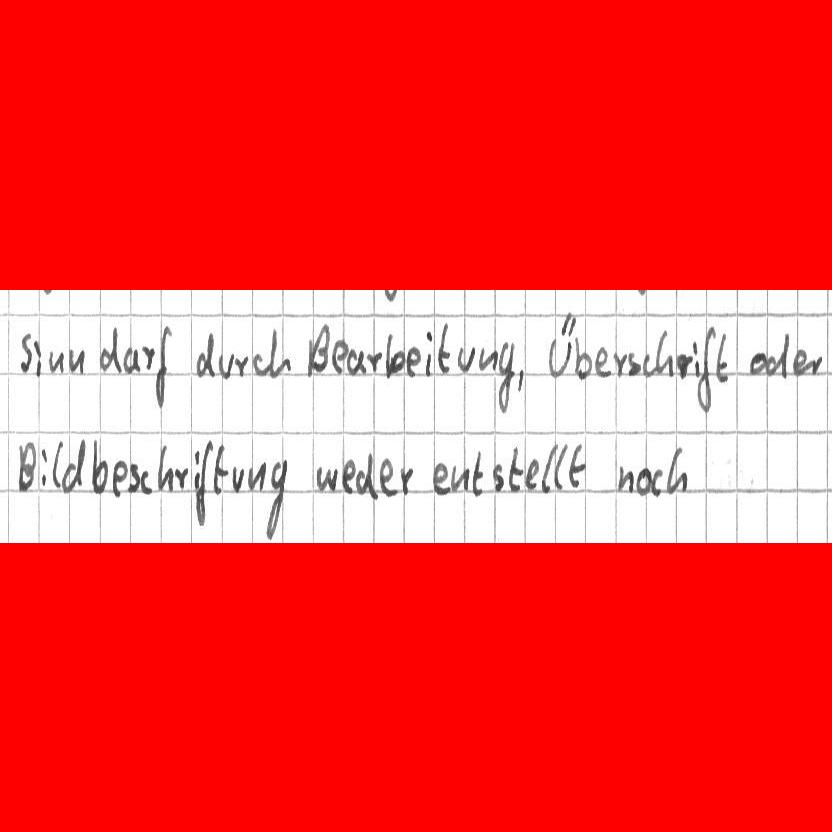 Sinn darf durch Bearbeitung, Überschrift oder
Bildbeschriftung weder entstellt noch